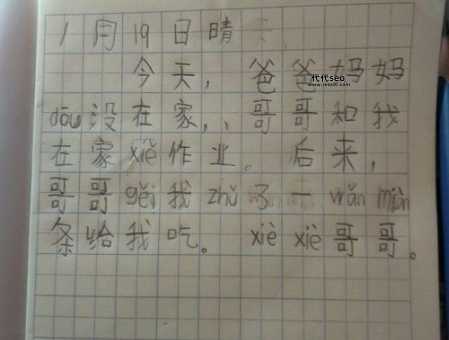 1月19日晴
今天，爸爸妈妈
dōu没在家，、哥哥和我
在家xiě作业。后来，
哥哥gěi我zhǔ了一wǎn miàn
条给我吃。xiè xiè哥哥。
代代seo
www.seo00.com